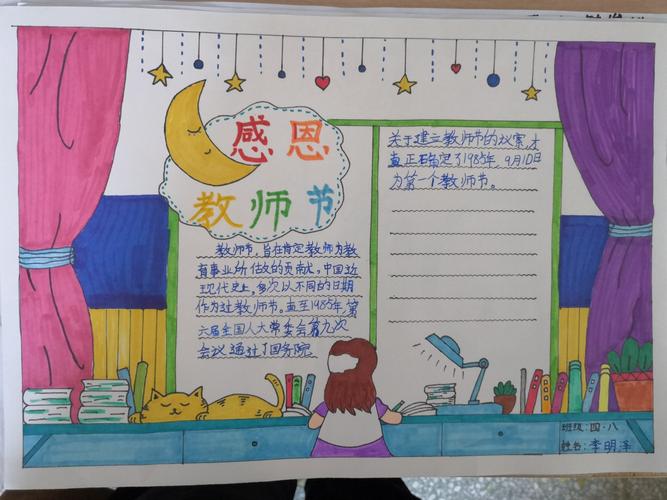 感恩
教师节
教师节，旨在肯定教师为教
育事业所做的贡献。中国近
现代史上，多次以不同的日期
作为过教师节。直至1985年，第
六届全国人大常委会第九次
会议通过了国务院
关于建立教师节的议案，才
真正确定了1985年，9月10日
为第一个教师节。
班级：四·八
姓名：李明泽